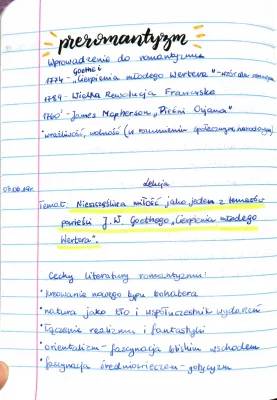 preromantyzm
Wprowadzenie do romantyzmu
Goethe'i
1774 - „Cierpienia młodego Wertera"
1789 - Wielka Rewolucja Francuska
1760 - James Mapherson „Pieśni Osjana"
• wrażliwość, wolność (w rozumieniu społecznym, narodowym)
Lekcja
Temat: Nieszczęśliwa miłość jako jeden z tematów
powieści J.W. Goethego „Cierpienia młodego
Wertera".
Cechy literatury romantyzmu:
• kreowanie nowego typu bohatera
• natura jako tło i współuczestnik wydarzeń
• łączenie realizmu i fantastyki
• orientalizm - fascynacja bliskim wschodem
• fascynacja średniowieczem - gotycyzm